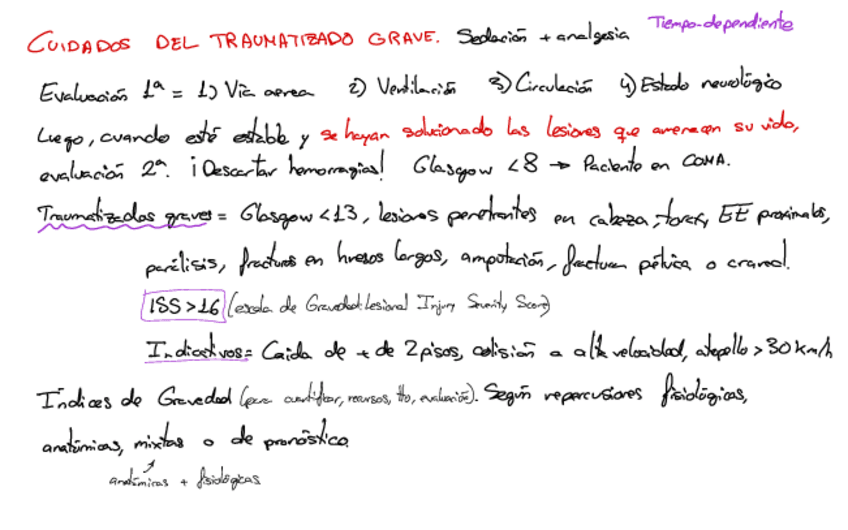 CUIDADOS DEL TRAUMATIZADO GRAVE. Sedación + analgesia Tiempo-dependiente
Evaluación 1ª = 1) Vía aerea 2) Ventilación 3) Circulación 4) Estado neurológico
Luego, cuando esté estable y se hayan solucionado las lesiones que amenacen su vida,
evaluación 2ª. ¡Descartar hemorragias! Glasgow <8 → Paciente en COMA.
Traumatizados graves = Glasgow <13, lesiones penetrantes en cabeza, torax, EE proximales,
parálisis, fracturas en huesos largos, amputación, fractura pélvica o craneal.
ISS>16 (escala de Gravedad Lesional Injury Severity Score)
Indicativos = Caida de + de 2 pisos, colisión a alta velocidad, atropello > 30 km/h
Índices de Gravedad (para cuantificar, recursos, tto, evaluación). Según repercusiones fisiológicas,
anatómicas, mixtas o de pronóstico.
anatómicas + fisiológicas